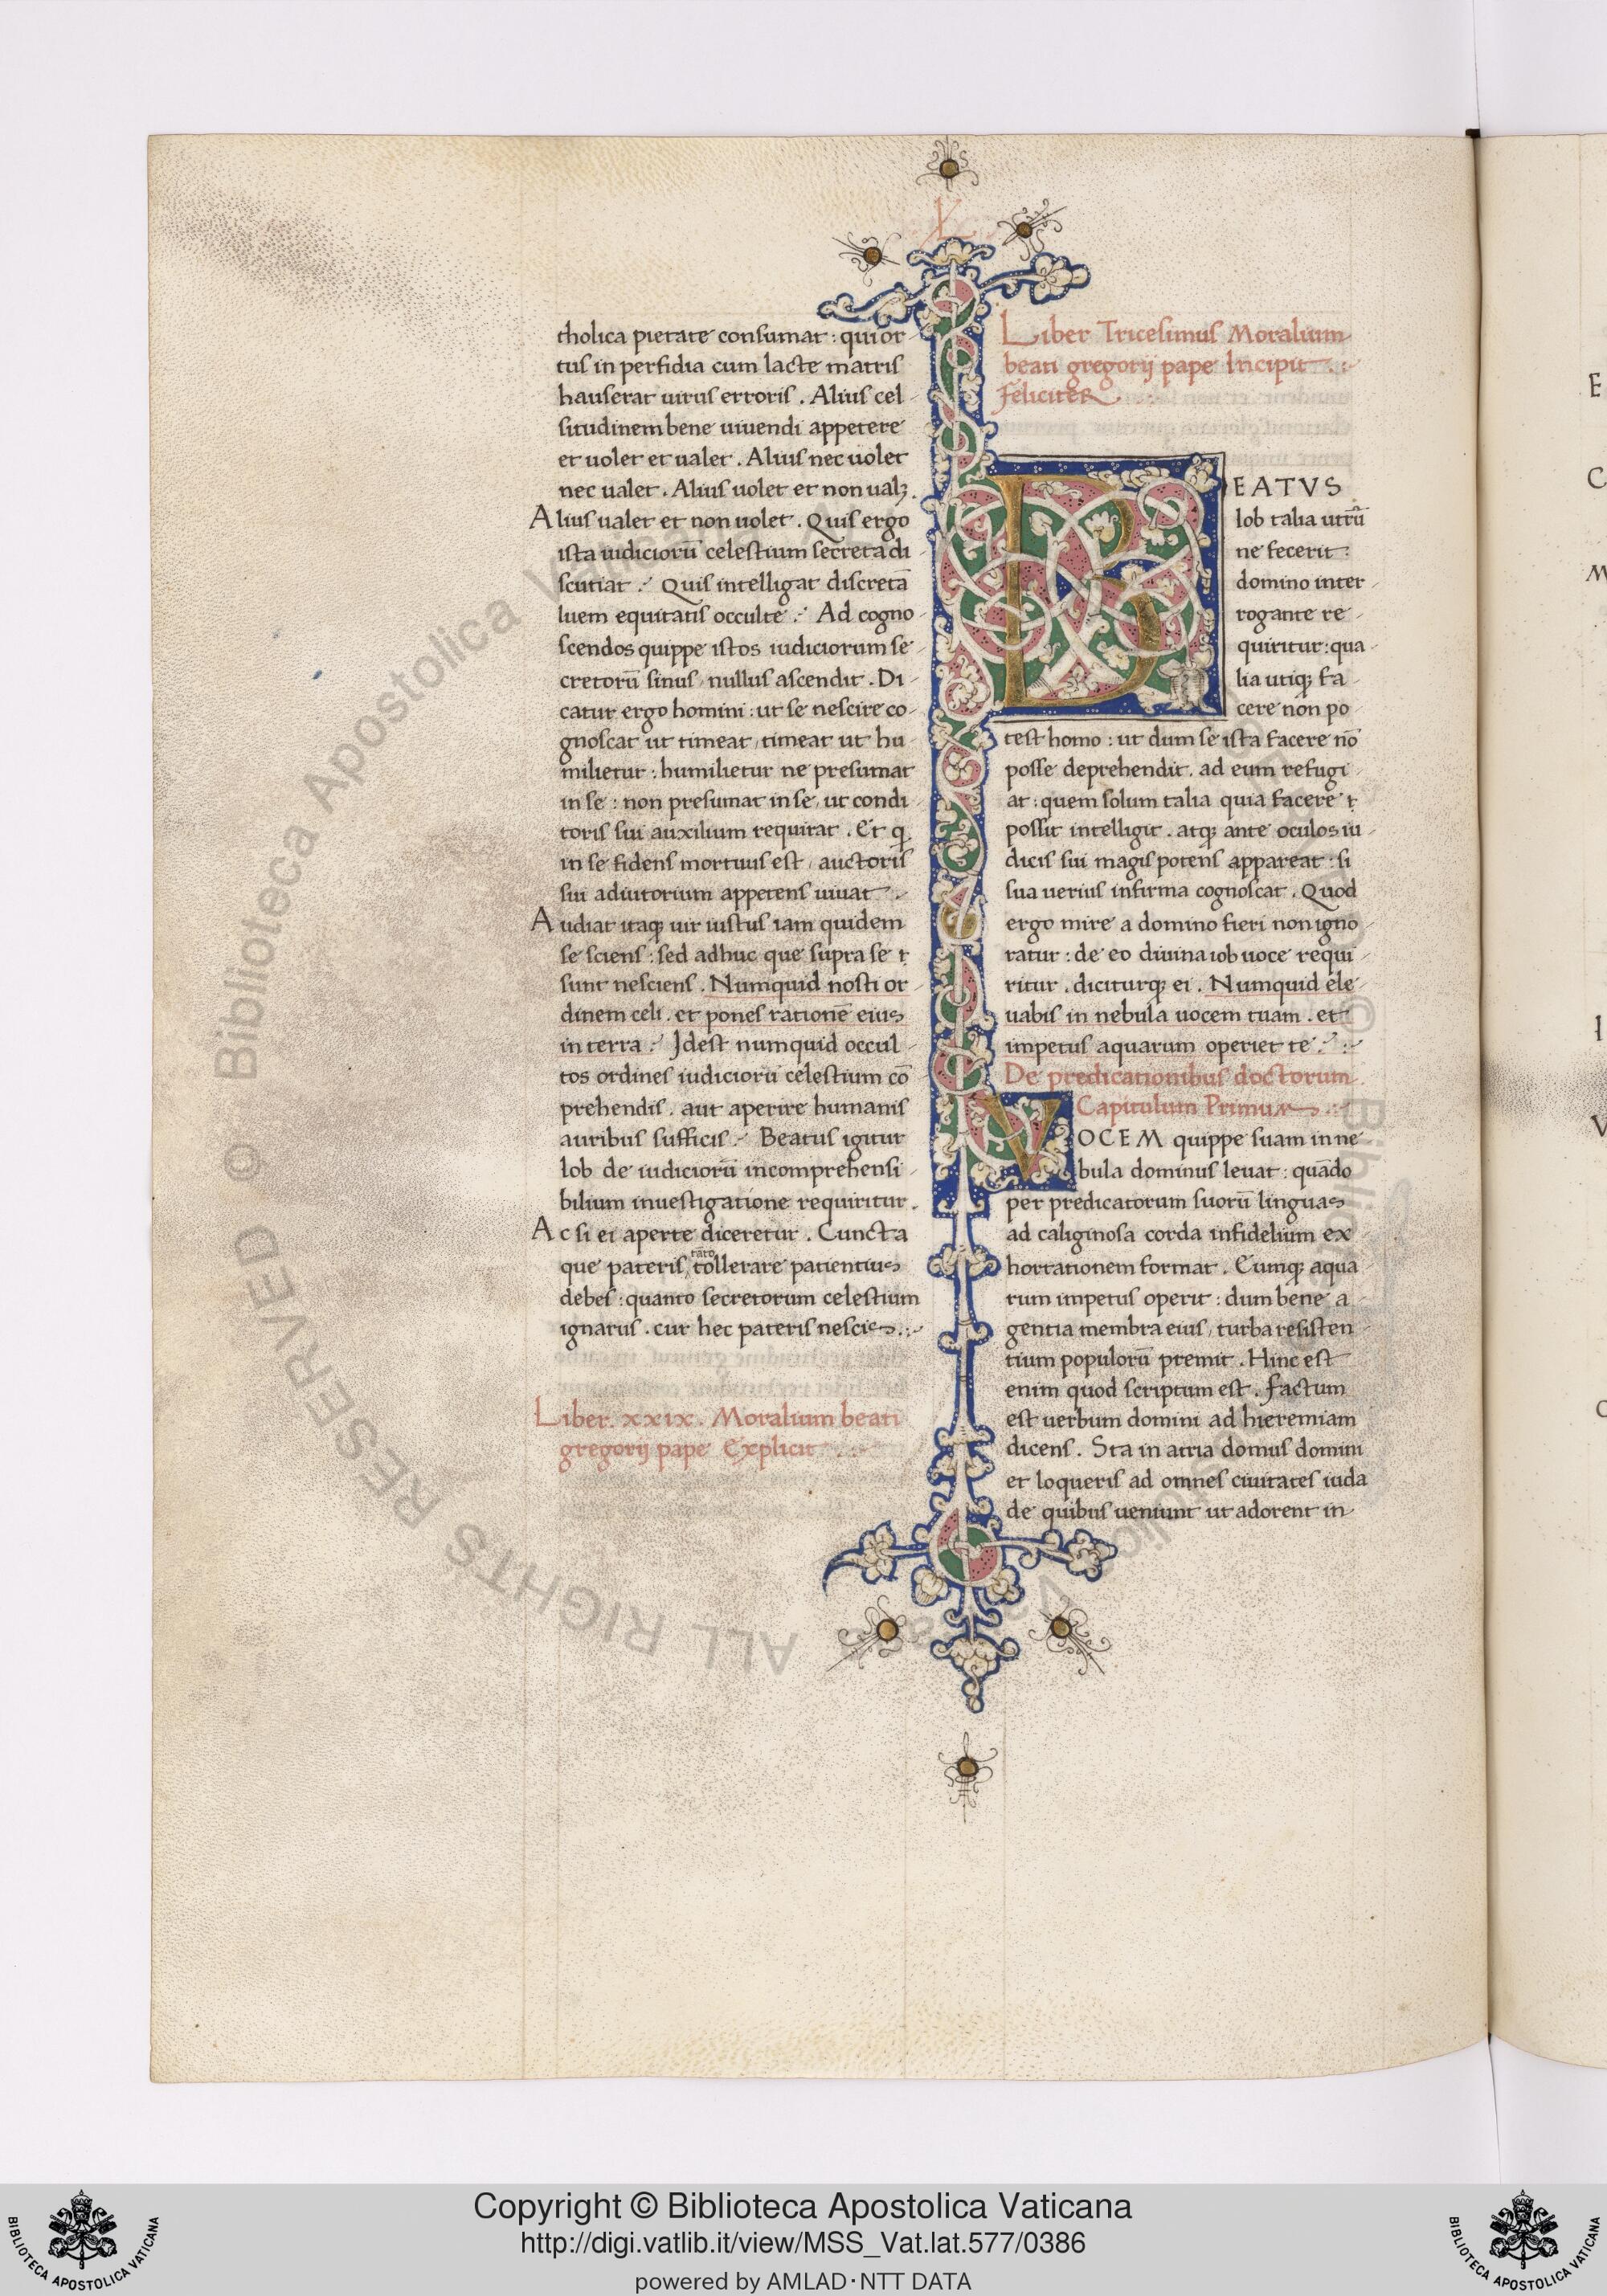 tholica pietate consumat : qui or
tus in perfidia cum lacte matris
hauserat uirus erroris . Alius cel
situdinem bene uiuendi appetere
et uolet et ualet . Alius nec uolet
nec ualet . Alius uolet et non ualꝫ .
Alius ualet et non uolet . Quis ergo
ista iudiciorū celestium secreta di
scutiat . Quis intelligat discretā
luem equitatis occulte . Ad cogno
scendos quippe istos iudiciorum se
cretorū sinus / nullus ascendit . Di
catur ergo homini : ut se nescire co
gnoscat ut timeat / timeat ut hu
milietur : humilietur ne presumat
in se : non presumat in se / ut condi
toris sui auxilium requirat . Et q
in se fidens mortuus est / auctoris
sui adiutorium appetens uiuat .
Audiat itaqꝫ uir iustus iam quidem
se sciens : sed adhuc que supra se t
sunt nesciens . Numquid nosti or
dinem celi . et pones rationē eius
in terra . Idest numquid occul
tos ordines iudiciorū celestium cō
prehendis . aut aperire humanis
auribus sufficis . Beatus igitur
Iob de iudiciorū incomprehensi
bilium inuestigatione requiritur .
Ac si ei aperte diceretur . Cuncta
que pateris / tāto tollerare patientius
debes : quanto secretorum celestium
ignarus . cur hec pateris nescis . :
Liber . xxix . Moralium beati
gregorij pape Explicit
Liber Tricesimus Moralium
beati gregorij pape Incipit . :
feliciter .
BEATVS
Iob talia utrū
ne fecerit :
domino inter
rogante re
quiritur : qua
lia utiqꝫ fa
cere non po
test homo : ut dum se ista facere nō
posse deprehendit . ad eum refugi
at : quem solum talia quia facere t
possit intelligit . atqꝫ ante oculos iu
dicis sui magis potens appareat : si
sua uerius infirma cognoscat . Quod
ergo mire a domino fieri non igno
ratur : de eo diuina iob uoce requi
ritur . diciturqꝫ ei . Numquid ele
uabis in nebula uocem tuam . et
impetus aquarum operiet te . :
De predicationibus doctorum .
Capitulum Primum . :
VOCEM quippe suam in ne
bula dominus leuat : quādo
per predicatorum suorū linguas
ad caliginosa corda infidelium ex
hortationem format . Cumqꝫ aqua
rum impetus operit : dum bene a
gentia membra eius / turba resisten
tium populorū premit . Hinc est
enim quod scriptum est . factum
est uerbum domini ad hieremiam
dicens . Sta in atria domus domini
et loqueris ad omnes ciuitates iuda
de quibus ueniunt ut adorent in
ALL RIGHTS RESERVED © Biblioteca Apostolica Vaticana
Copyright © Biblioteca Apostolica Vaticana
http://digi.vatlib.it/view/MSS_Vat.lat.577/0386
powered by AMLAD·NTT DATA
BIBLIOTECA APOSTOLICA VATICANA
BIBLIOTECA APOSTOLICA VATICANA